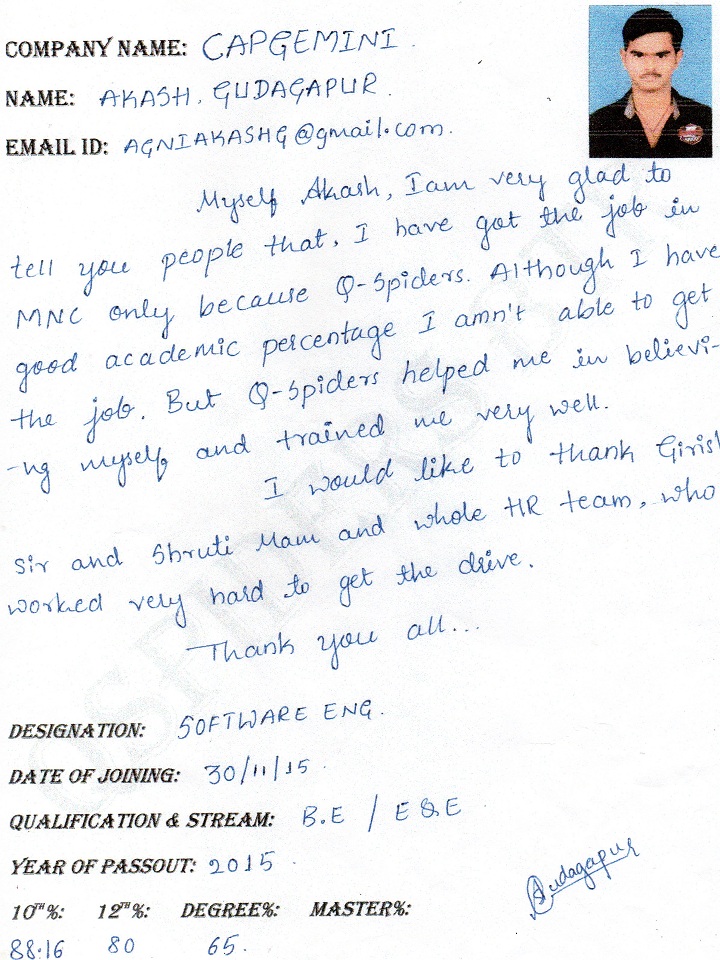 COMPANY NAME: CAPGEMINI.
NAME: AKASH. GUDAGAPUR.
EMAIL ID: AGNIAKASHG@gmail.com.
Myself Akash, I am very glad to
tell you people that, I have got the job in
MNC only because Q-Spiders. Although I have
good academic percentage I amn't able to get
the job. But Q-Spiders helped me in believi-
-ng myself and trained me very well.
I would like to thank Girish
Sir and Shruti Mam and whole HR team, who
worked very hard to get the drive.
Thank you all...
DESIGNATION: SOFTWARE ENG.
DATE OF JOINING: 30/11/15
QUALIFICATION & STREAM: B.E / E&E
YEAR OF PASSOUT: 2015.
Gudagapur
10TH%: 12TH%: DEGREE%: MASTER%:
88.16 80 65.